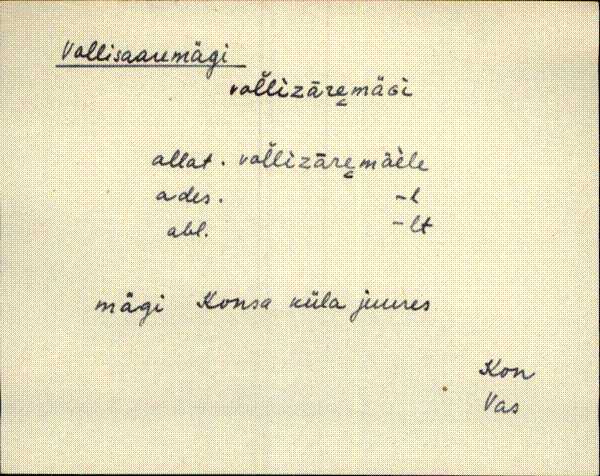 Vallisaaremägi
vallizāre̮mäGi
allat. vallizāre̮mäele
ades. -l
abl. -lt
mägi Konsa küla juures
Kon
Vas